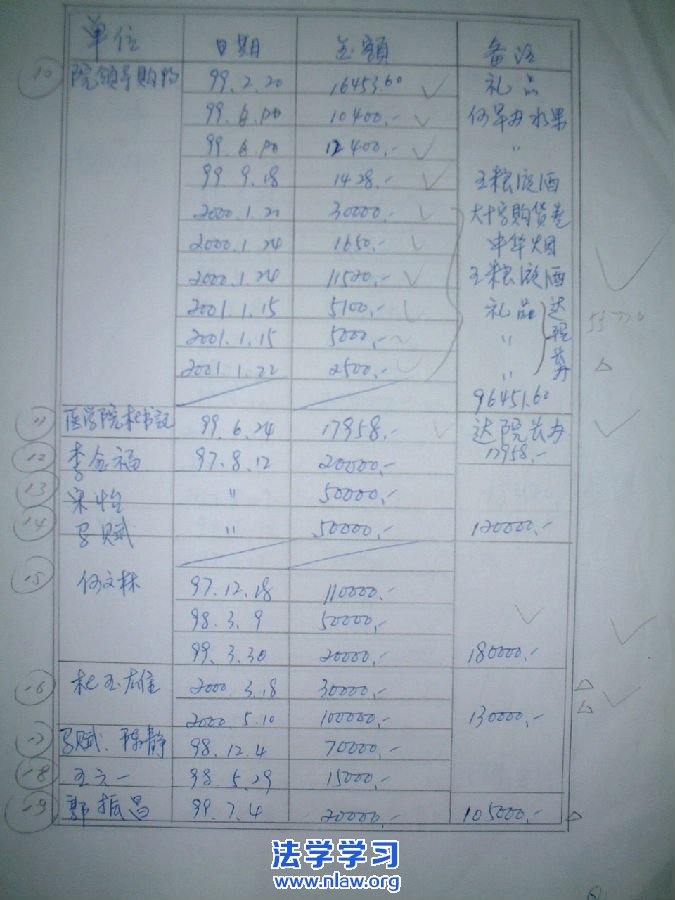 单位 日期 金额 备注
10 院领导购物 99.2.20 16453.60 礼品
99.6.10 10400.- 何早办水果
99.6.10 12400.- "
99.9.18 1428.- 五粮液酒
2000.1.21 30000.- 大十字购货
2000.1.24 1650.- 中华烟
2000.1.24 11520.- 五粮液酒
2001.1.15 5100.- 礼品
2001.1.15 5000.- "
2001.1.22 2500.- "
96451.60
11 99.6.24 17958.- 达院长办
17958.-
12 李金福 97.8.12 20000.-
13 宋怡 " 50000.-
14 马赋 " 50000.- 120000.-
15 何文林 97.12.18 110000.-
98.3.9 50000.-
99.3.30 20000.- 180000.-
16 杜玉雄 2000.3.18 30000.-
2000.5.10 100000.- 130000.-
17 马赋、陈静 98.12.4 70000.-
18 王立一 98.5.29 15000.-
19 郭振昌 99.7.4 20000.- 105000.-
法学学习
www.nlaw.org